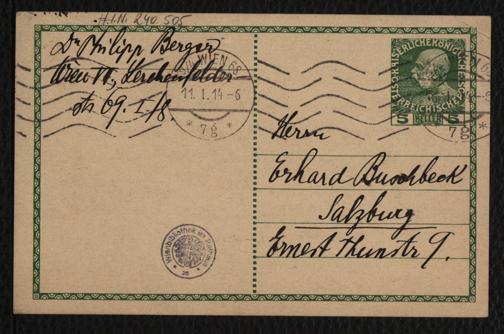 H.I.N. 240.505
Dr Philipp Berger
Wien VII, Lerchenfelder
str 69. I/8.
WIEN 68
11. I. 14-6
* 7g *
KAISERLICHE KÖNIGLICHE
ÖSTERREICHISCHE
5 HELLER 5
7g
Herrn
Erhard Buschbeck
Salzburg
Ernest Thunstr 9.